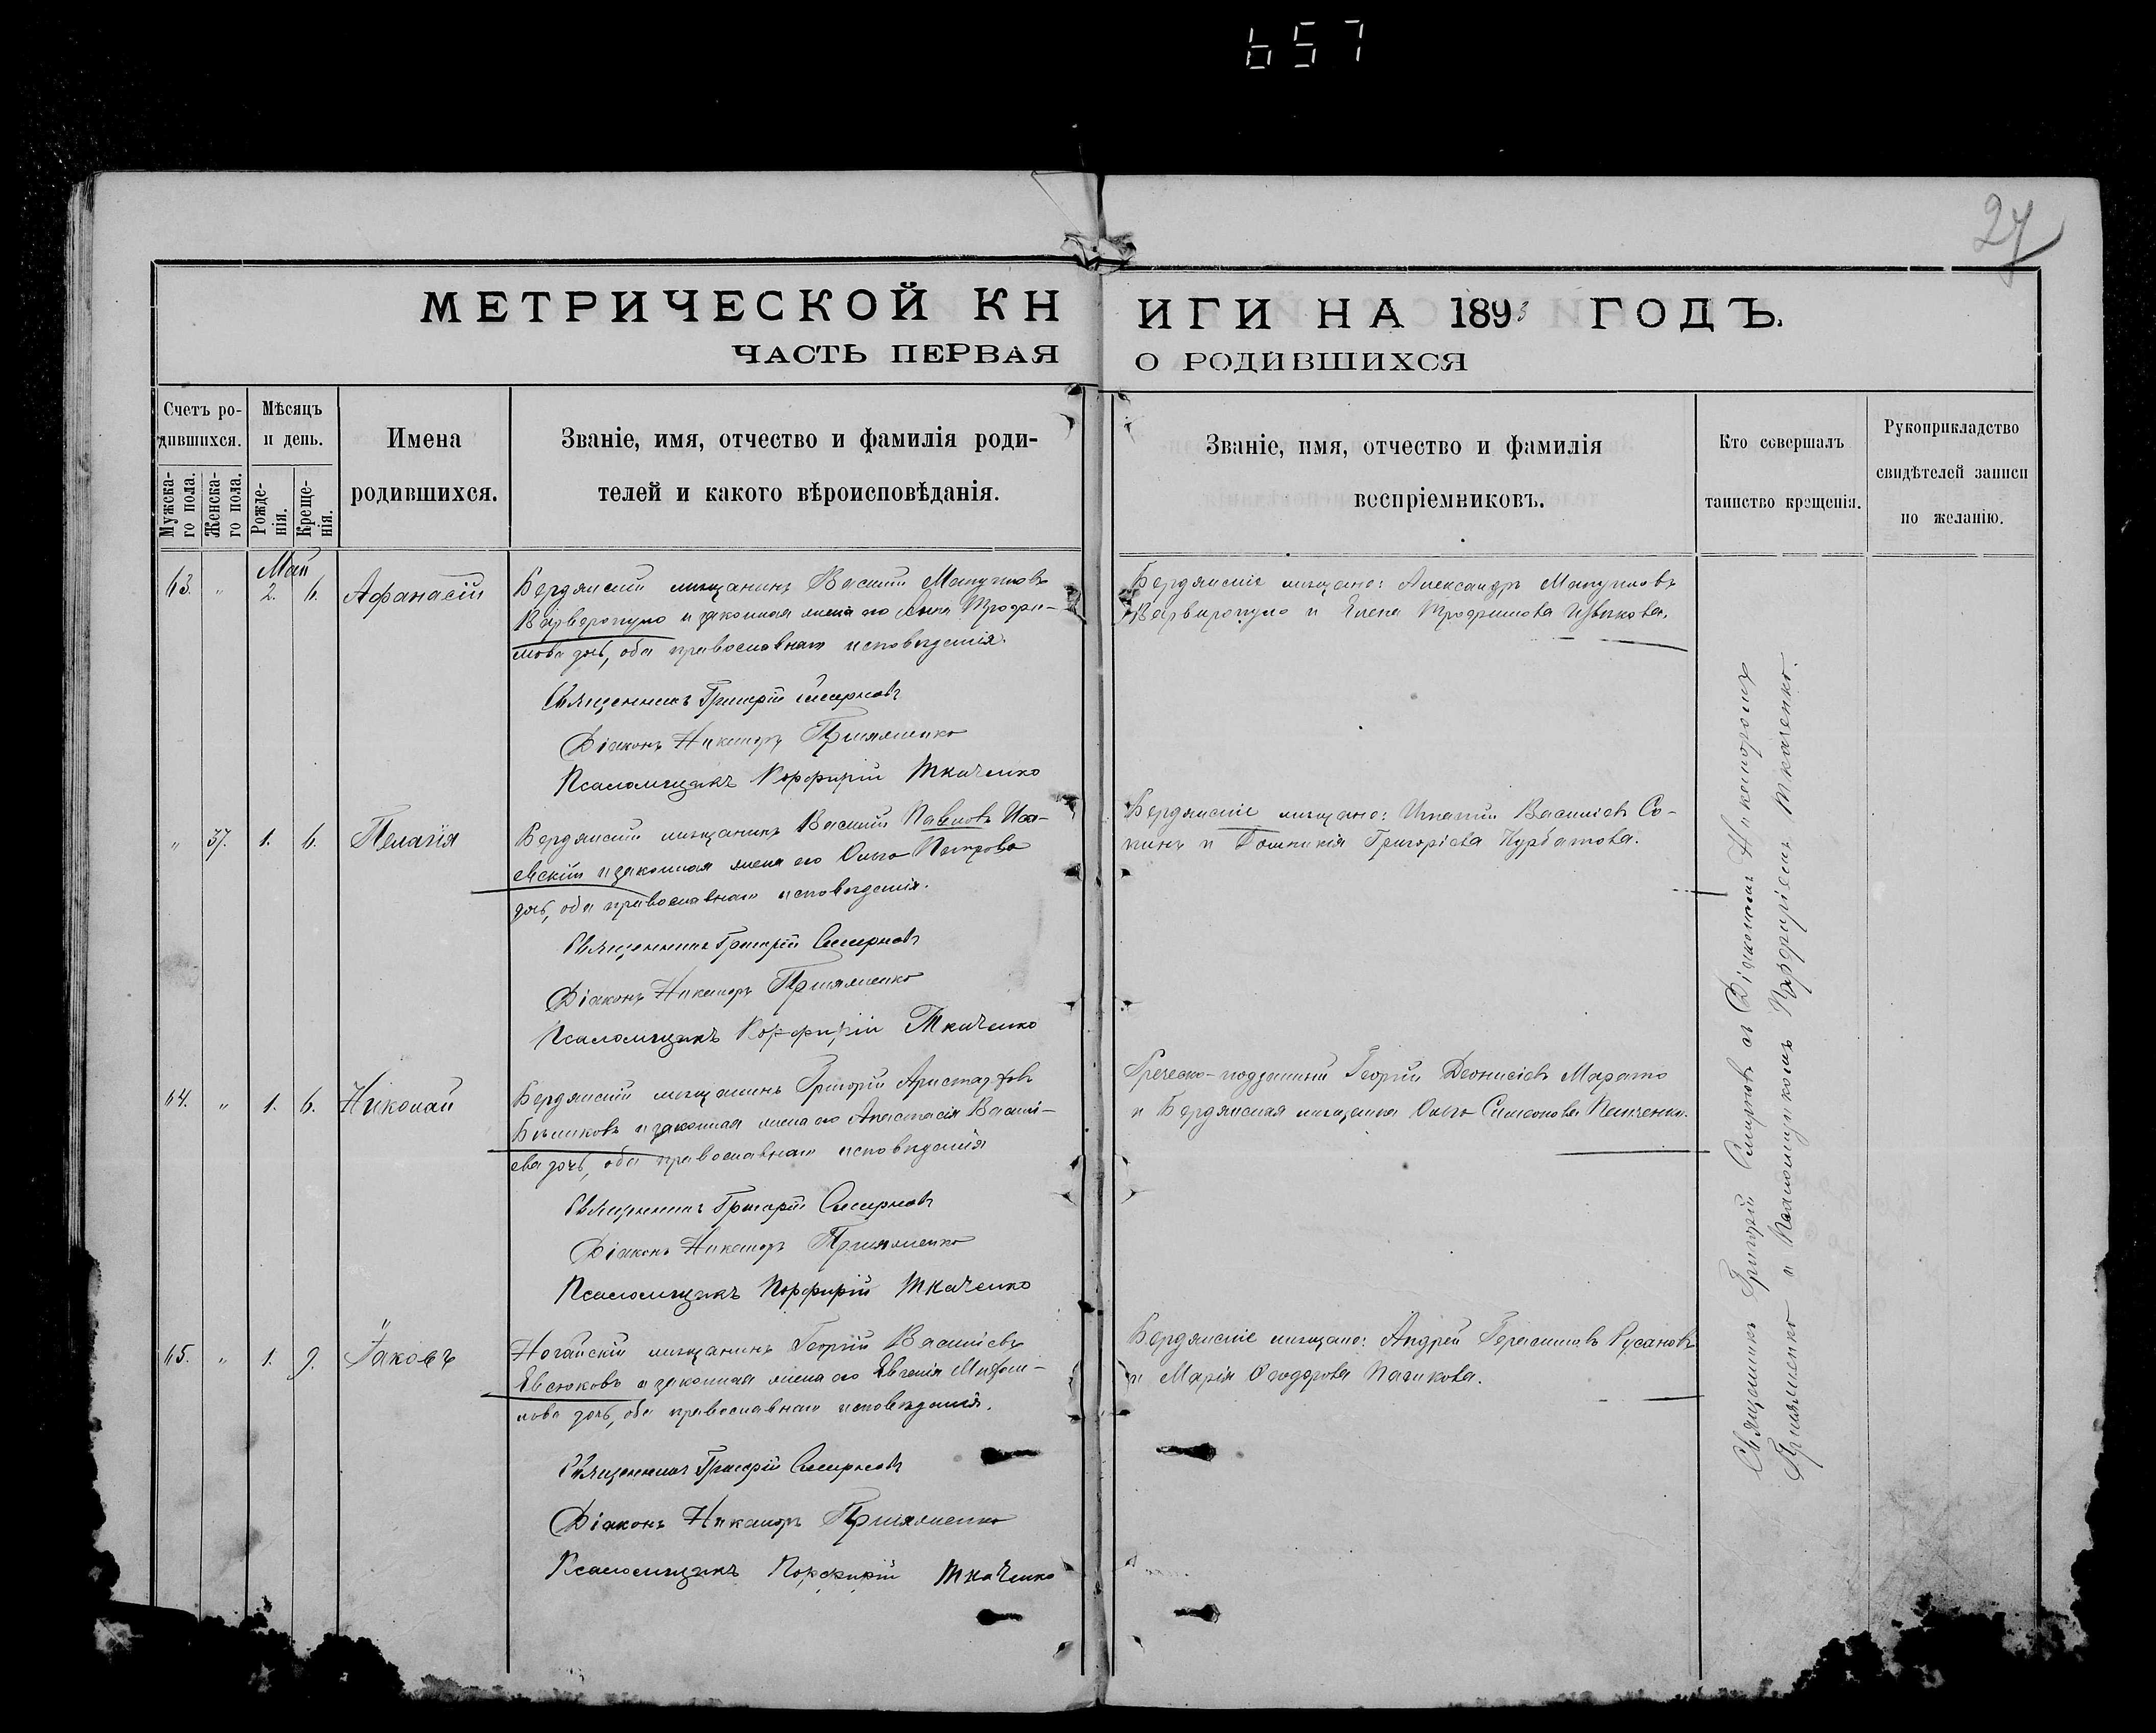 657
27
МЕТРИЧЕСКОЙ КНИГИ НА 1893 ГОДЪ.
ЧАСТЬ ПЕРВАЯ О РОДИВШИХСЯ
Счетъ родившихся.
Мужскаго пола.
Женскаго пола.
Мѣсяцъ и день.
Рожденія.
Крещенія.
Имена родившихся.
Званіе, имя, отчество и фамилія роди-
телей и какого вѣроисповѣданія.
Званіе, имя, отчество и фамилія
воспріемниковъ.
Кто совершалъ
таинство крещенія.
Рукоприкладство
свидѣтелей записи
по желанію.
Май
63. " 2. 6. Афанасій
Бердянскій мѣщанинъ Василій
и законная жена его Анна Трофи-
мова дочь, оба православнаго исповѣданія.
Священникъ Григорій Смирновъ
Діаконъ Никаноръ
Псаломщикъ Порфирій Ткаченко
Бердянскіе мѣщане: Александръ
и Елена Трофимова
" 37. 1. 6. Пелагія
Бердянскій мѣщанинъ Василій Павловъ Иса-
евскій и законная жена его Ольга Петрова
дочь, оба православнаго исповѣданія.
Священникъ Григорій Смирновъ
Діаконъ Никаноръ
Псаломщикъ Порфирій Ткаченко
Бердянскіе мѣщане: Игнатій Васильевъ Со-
пинъ и Григоріева Курбатова.
64. " 1. 6. Николай
Бердянскій мѣщанинъ Григорій Аристарховъ
и законная жена его Анастасія Василі-
ева дочь, оба православнаго исповѣданія
Священникъ Григорій Смирновъ
Діаконъ Никаноръ
Псаломщикъ Порфирій Ткаченко
Греческо-подданный Георгій Деонисіевъ Марато
и Бердянская мѣщанка Ольга Симеонова
65. " 1. 9. Іаковъ
Ногайскій мѣщанинъ Георгій Василіевъ
Евсюковъ и законная жена его Евгенія
дочь, оба православнаго исповѣданія.
Священникъ Григорій Смирновъ
Діаконъ Никаноръ
Псаломщикъ Порфирій Ткаченко
Бердянскіе мѣщане: Андрей Герасимовъ Русановъ
и Марія Ѳеодорова
Священникъ Григорій Смирновъ съ Діакономъ Никаноромъ
и Псаломщикомъ Порфиріемъ Ткаченко.